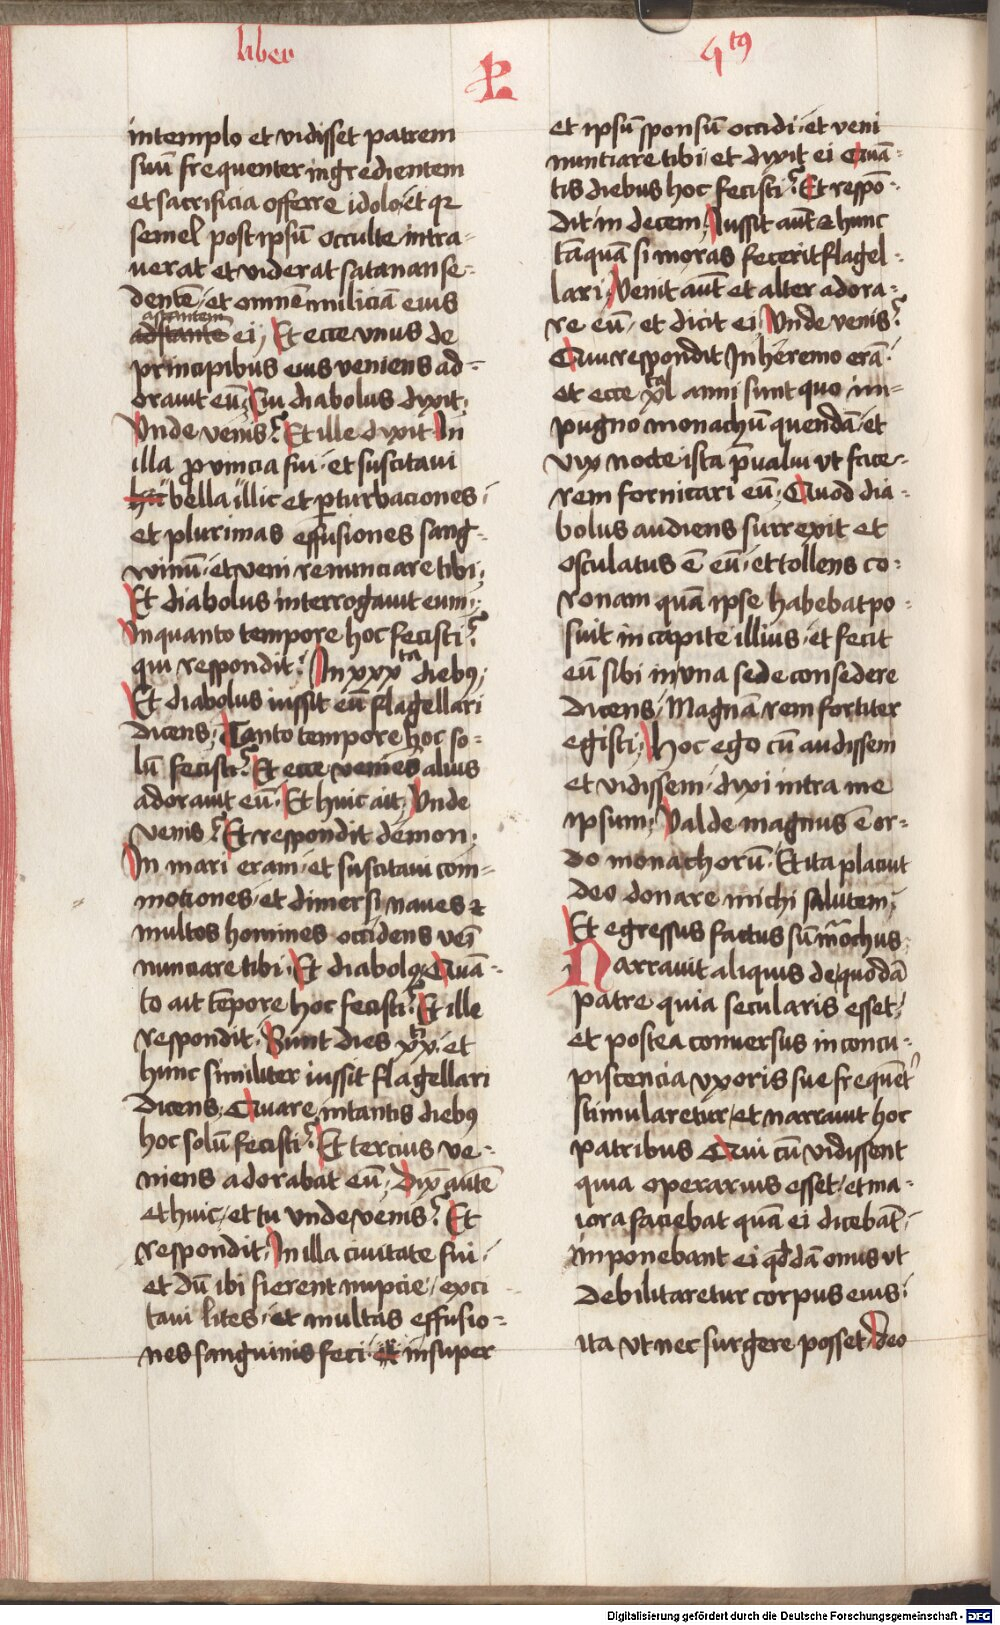 liber
4tꝰ
intemplo et vidisset patrem
suū frequenter ingredientem
et sacrificia offerre idolo et qꝛ
semel post ipsū occulte intra-
uerat et viderat satanan se-
dentē et omnē miliciā eius
astantem
adstantē ei Et ecce vnus de
principibus eius veniens ad-
orauit eū Cui diabolus dixit
Vnde venis? Et ille dixit In
illa ꝓuincia fui et suscitaui
bella illic et ꝑturbaciones
et plurimas effusiones sang-
winū et veni renunciare tibi
Et diabolus interrogauit eum
Inquanto tempore hoc fecisti?
qui respondit In xxxta diebꝰ
Et diabolus iussit eū flagellari
dicens Tanto tempore hoc so-
lū fecisti? Et ecce venies alius
adorauit eū Et huic ait Vnde
venis? Et respondit demon
In mari eram et suscitaui com-
motiones et dimersi naues ⁊
multos homines occidens veī
nunciare tibi Et diabolꝰ Quā-
to ait tēpore hoc fecisti? Et ille
respondit Sunt dies xxti et
hunc similiter iussit flagellari
dicens Quare intantis diebꝰ
hoc solū fecisti? Et tercius ve-
niens adorabat eū Dix̄ autē
et huic et tu vnde venis? Et
respondit In illa ciuitate fui
et dū ibi fierent nupcie exci
taui lites et multas effusio-
nes sanguinis feci insuper
et ipsū sponsū occidi et veni
nuntiare tibi et dixit ei Quā-
tis diebus hoc fecisti? Et respō-
dit in decem Iussit aūt ⁊ hunc
tāquā si moras fecerit flagel-
lari Venit aūt et alter adora-
re eū et dicit ei Vnde venis?
Qui respondit In heremo erā
et ecce xlta anni sunt quo im-
pugno monachū quendā et
vix nocte ista p̄ualui vt face-
rem fornicari eū Quod dia-
bolus audiens surrexit et
osculatus ē eū et tollens co-
ronam quā ipse habebat po-
suit in capite illius et fecit
eū sibi in vna sede consedere
dicens Magnā rem fortiter
egisti Hoc ego cū audissem
et vidissem dixi intra me
ipsum Valde magnus ē or-
do monachorū Et ita placuit
deo donare michi salutem
Et egressus factus sū mochus
Narrauit aliquis de quodā
patre quia secularis esset
et postea conuersus in concu-
piscencia vxoris sue frequēt'
stimularetur et narrauit hoc
patribus Qui cū vidissent
quia operarius esset et ma-
iora faciebat quā ei dicebāt
imponebant ei qddā onus vt
debilitaretur corpus eius
ita vt nec surgere posset deo
Digitalisierung gefördert durch die Deutsche Forschungsgemeinschaft - DFG